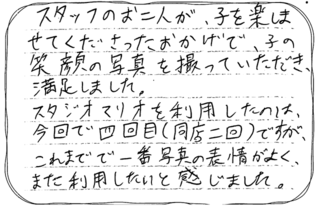 スタッフのお二人が、子を楽しま
せてくださったおかげで、子の
笑顔の写真を撮っていただき、
満足しました。
スタジオマリオを利用したのは、
今回で四回目(同店二回)ですが、
これまでで一番写真の表情がよく、
また利用したいと感じました。